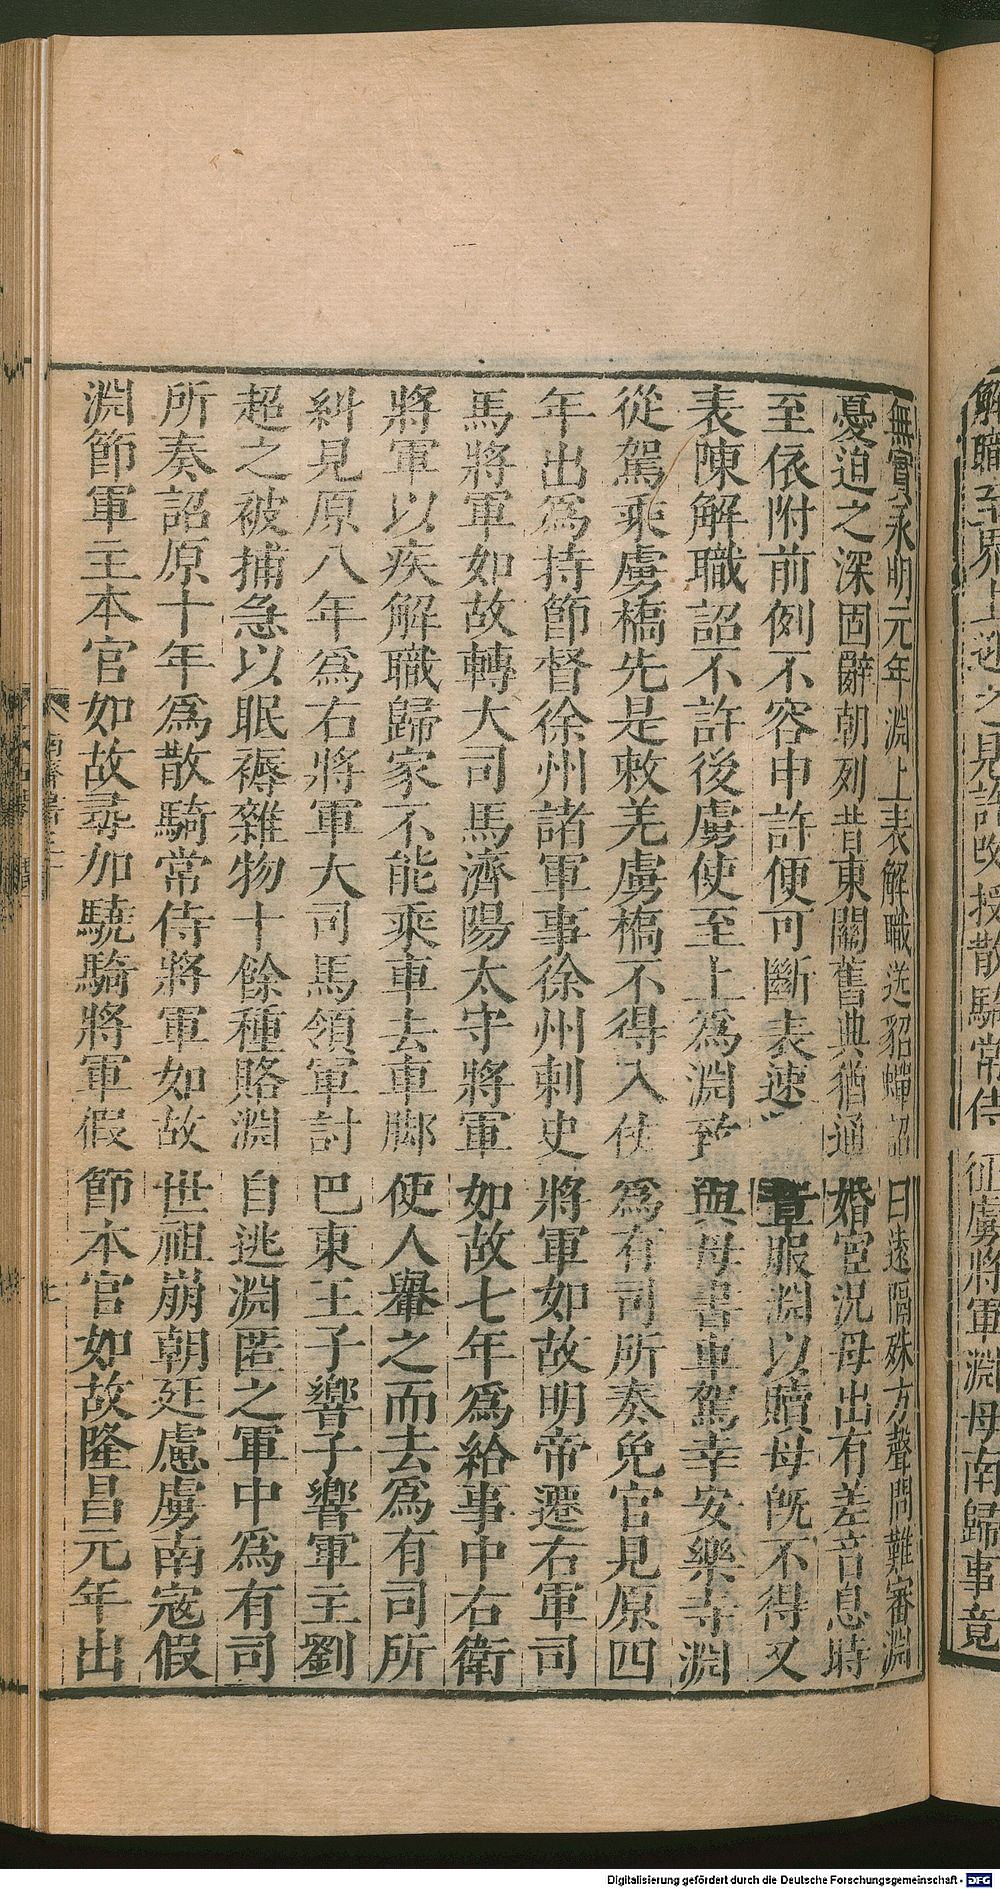 解職至界上迎之見許改授散騎常侍征虜將軍淵母南歸事竟
無實永明元年淵上表解職送貂蟬詔曰遠隔殊方聲問難審淵
憂迫之深固辭朝列昔東關舊典猶通婚宦況母出有差音息時
至依附前例不容申許便可斷表速章服淵以贖母既不得又
表陳解職詔不許後虜使至上為淵致與母書車駕幸安樂寺淵
從駕乘虜橋先是敕羌虜橋不得入仗為有司所奏免官見原四
年出為持節督徐州諸軍事徐州刺史將軍如故明帝遷右軍司
馬將軍如故轉大司馬濟陽太守將軍如故七年為給事中右衛
將軍以疾解職歸家不能乘車去車脚使人轝之而去為有司所
糾見原八年為右將軍大司馬領軍討巴東王子響子響軍主劉
超之被捕急以眠褥雜物十餘種賂淵自逃淵匿之軍中為有司
所奏詔原十年為散騎常侍將軍如故世祖崩朝廷慮虜南寇假
淵節軍主本官如故尋加驍騎將軍假節本官如故隆昌元年出
Digitalisierung gefördert durch die Deutsche Forschungsgemeinschaft - DFG